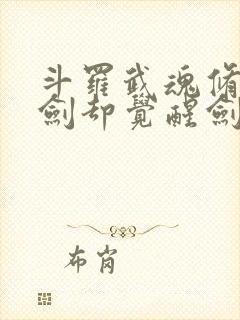 斗羅武魂脩
劍却覺醒劍
布肖